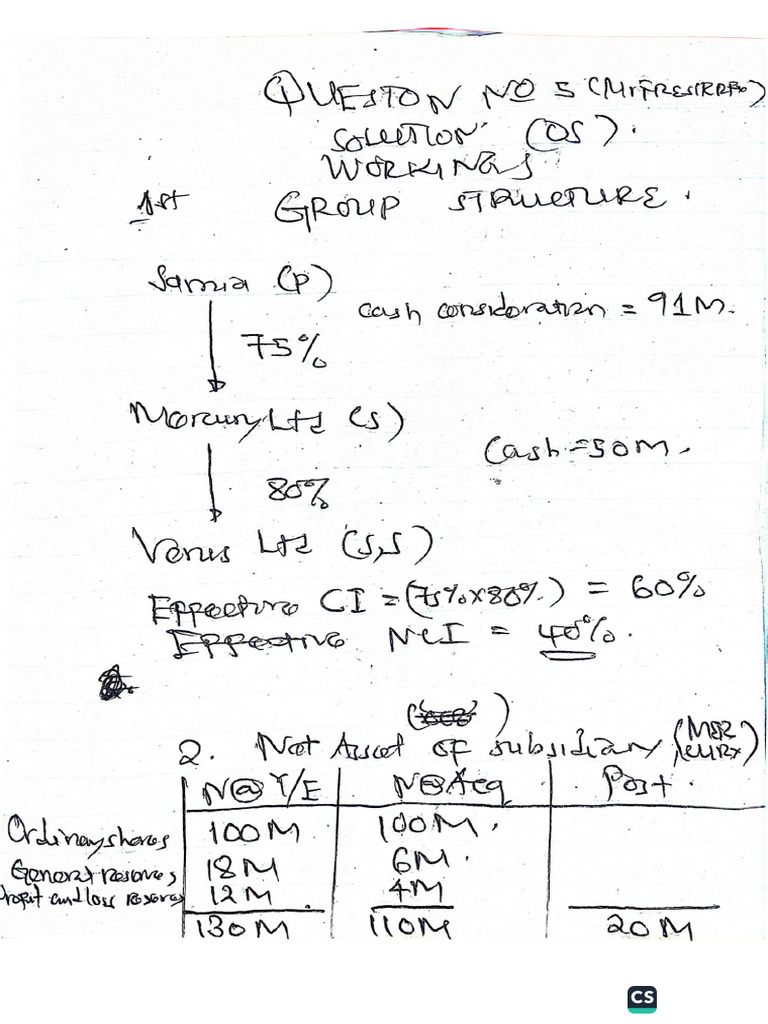 QUESTON NO 5 (
SOLUTION (OS).
WORKINGS
1st GROUP STRUCTURE.
Samia (P)
Cash consideration = 91M.
75%
Mercury Ltd (S)
Cash = 50M.
80%
Venus Ltd (S,S)
Effective CI = (75%x80%) = 60%
Effective NCI = 40%.
2. Net Asset of subsidiary
N@ Y/E N@Acq Post.
Ordinary shares 100M 100M.
General reserves 18M 6M.
Profit and loss reserves 12M. 4M
130M 110M 20M
CS